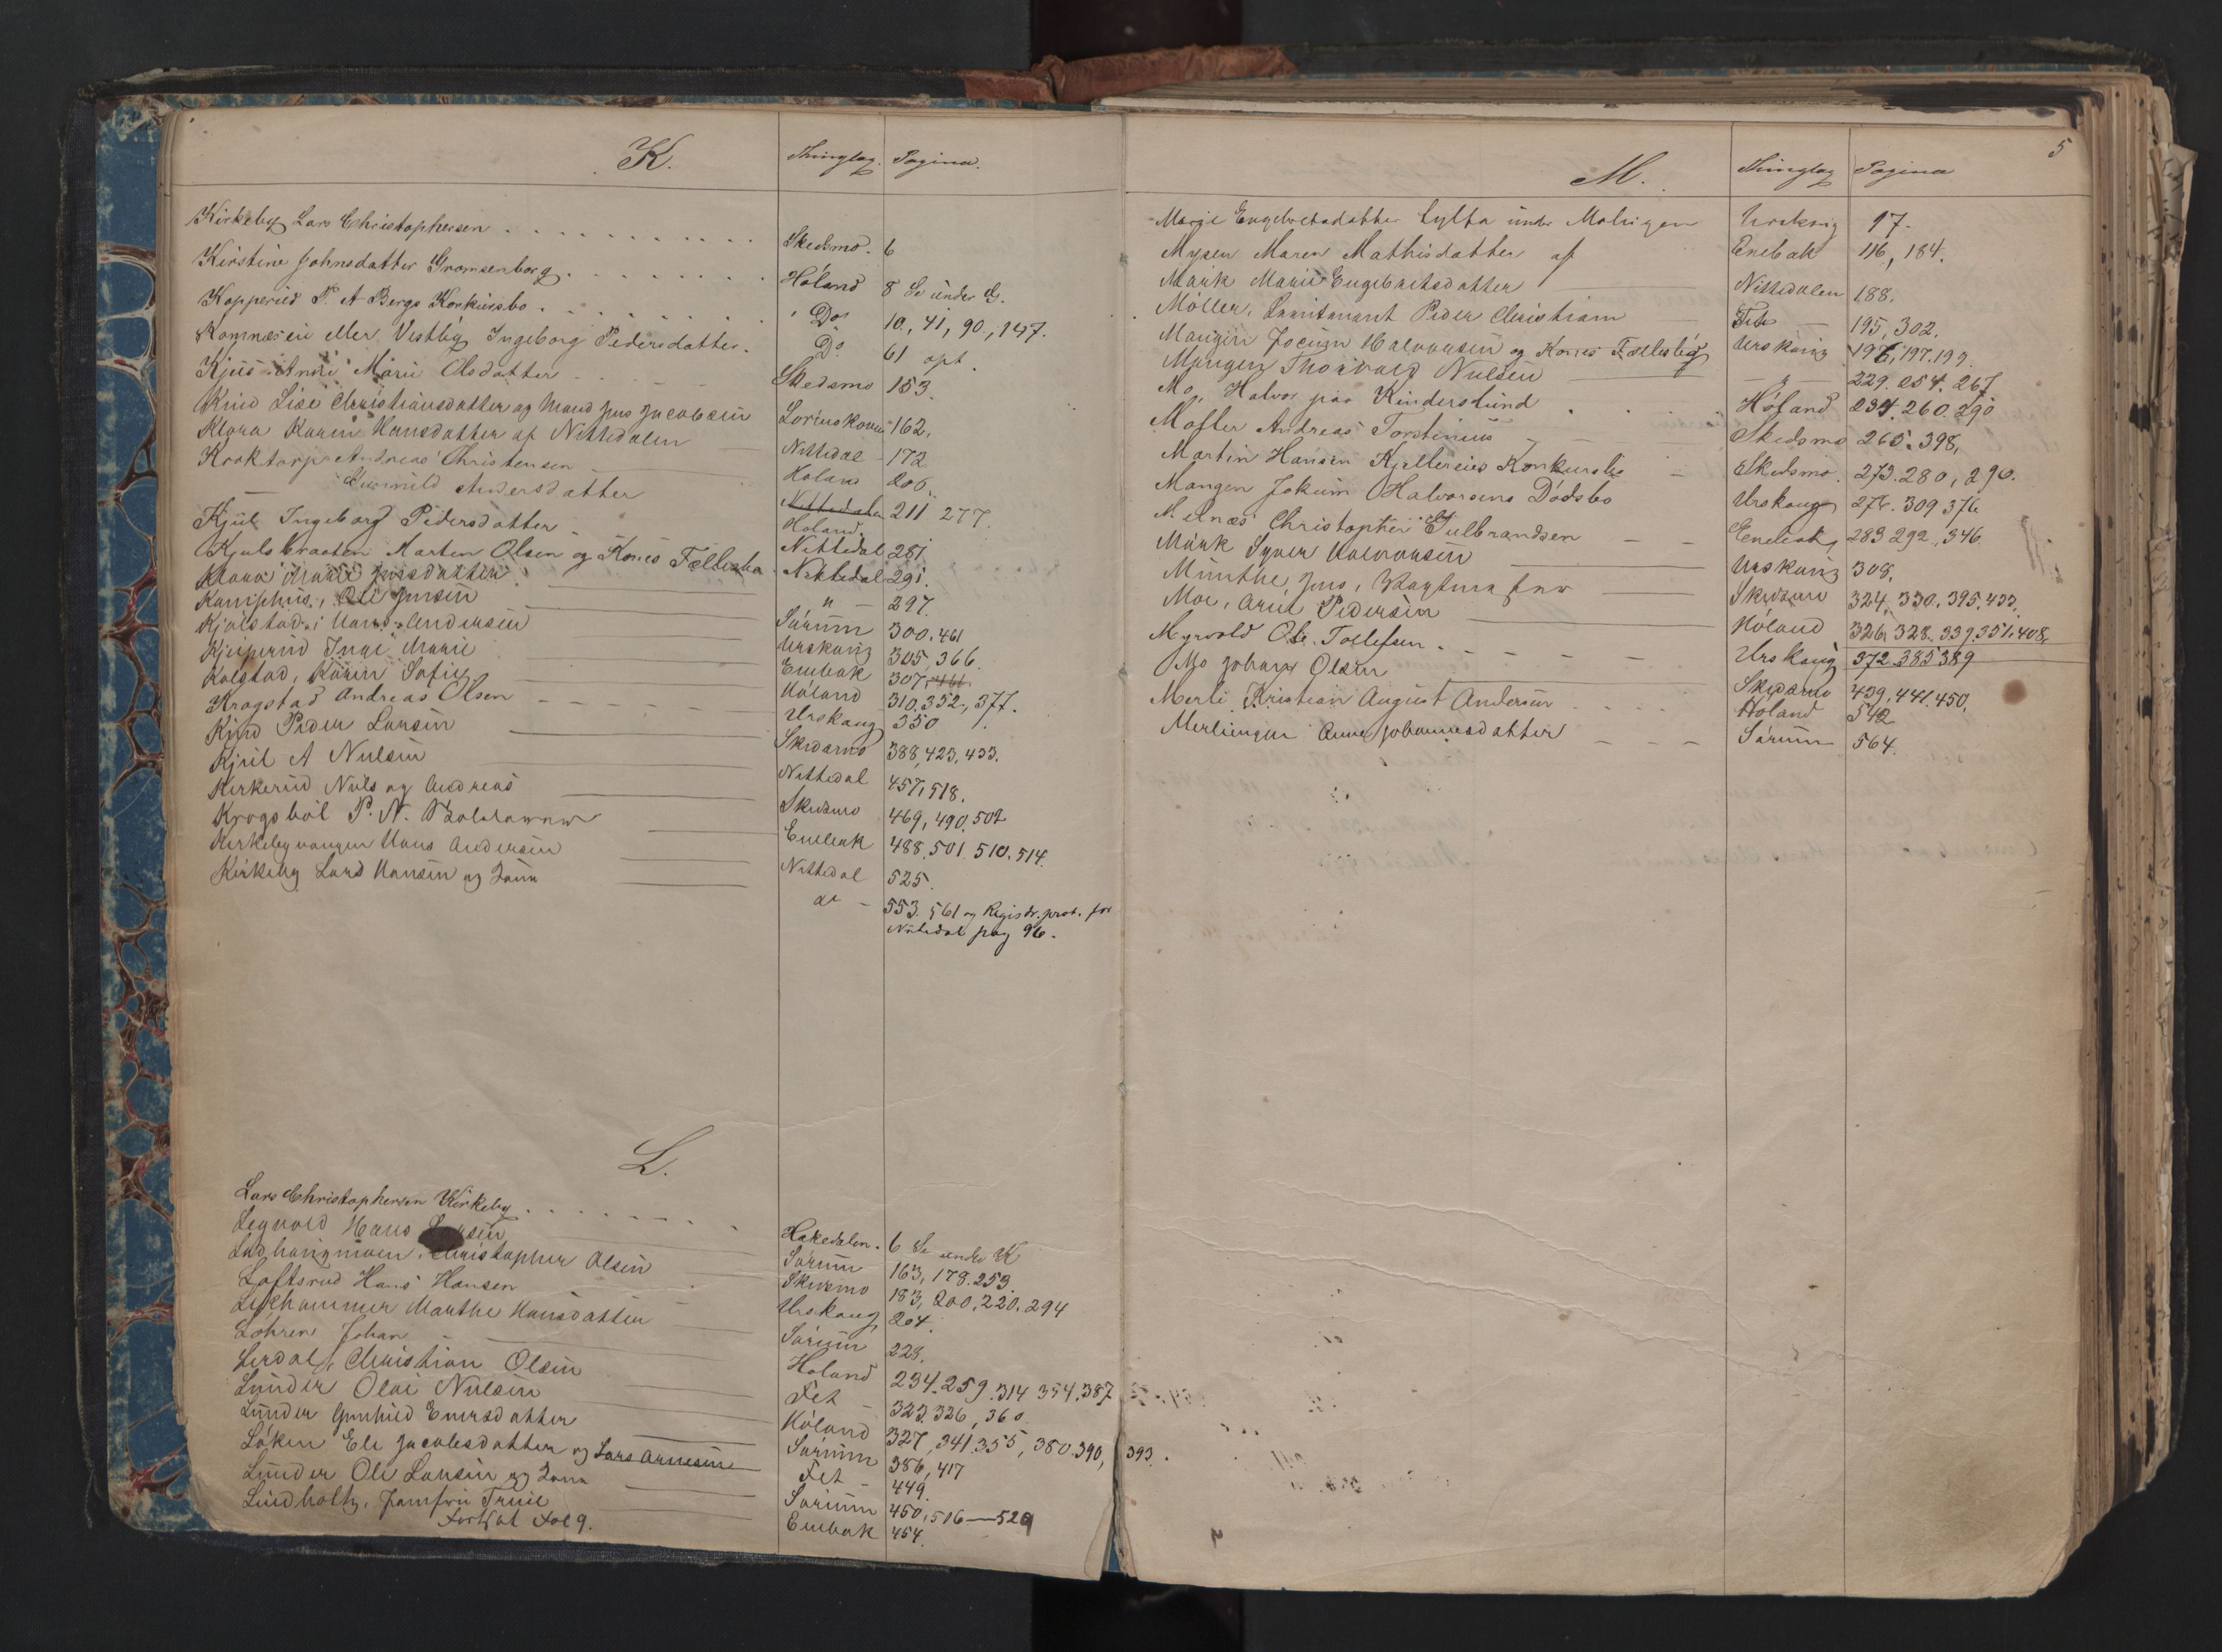 K. Thinglag. Pagina.
Kirkeby Lars Christophersen . . . Skedsmo. 6
Kirstine Johnsdatter Gromsenborg . . . Höland 8 Se under G.
Kopperud P. A Bergs Konkursbo . . . Do 10, 41, 90, 147.
Komnæseie eller Vestby Ingeborg Pedersdatter. Do 61 opt.
Kjus Anne Marie Olsdatter Skedsmo 153.
Lise Christiansdatter og Mand Jens Jacobsen Lørenskoven 162.
Klara Karen Hansdatter af Nittedalen Nittedal 172
Kroktorp Andreas Christensen Höland 206.
Gunnild Andersdatter Nittedalen 211 277.
Kjul Ingeborg Pedersdatter Höland
Kjulsbraaten Marten Olsen og Kones Fællesbo Nittedal 281
Klara Marie Jensdatter Nittedal 291.
Ole Jensen " 297.
Kjölstad, Hans Andersen Sörum 300. 461
Inge Marie Urskoug 305, 366.
Kolstad, Karen Sofie Enebak 307, 461.
Krogstad Andreas Olsen Höland 310, 352, 377.
Kjus Peder Larsen Urskaug 350
Kjul A Nilsen Skedsmo 388, 423, 433.
Kirkerud Nils og Andreas Nittedal 457, 518.
Krogsböl P. N. Skedsmo 469, 490. 502
Kirkebyvangen Hans Andersen Enebak 488. 501. 510. 514.
Kirkeby Lars Hansen og Kone Nittedal 525.
do 553. 561 og Registr. prot. for
Nittedal pag 96.
L.
Lars Christophersen Kirkeby . . . Hakedalen. 6 Se under K
Legvold Hans Larsen Sörum 163, 178. 253.
Christopher Olsen Skedsmo 183, 200, 220. 294
Loftsrud Hans Hansen Urskoug 204.
Marthe Hansdatter Sörum 228.
Lohren Johan Höland 234. 259. 314 354. 387
Lerdal, Christian Olsen Fet 323. 326, 360.
Lunder Olai Nilsen Höland 327, 341. 355, 380. 390, 393.
Lunder Gunhild Enersdatter Sörum 386, 417
Löken Eli Jacobsdatter og Lars Arnesen Fet 449.
Lunder Ole Larsen og Kone Sörum 450, 516—520
Lindholtz, Jomfru Trine Enebak 454.
Fortsat Fol 9.
5
M. Thinglag Pagina
Marie Engebretsdatter Lytta under Urskoug 17.
Mysen Maren Mathisdatter af Enebak 116, 184.
Mörk Marie Engebretsdatter Nittedalen 188.
Möller, Peder Christian Fet 195, 302.
Mangen Jocum Halvorsen og Kones Fællesbo Urskoug 196, 197. 199
Mangen Thorvald Nilsen — " — 229. 254. 267
Mo, Halvor paa Kinderslund Höland 234. 260. 290
Moster Andreas Torstensen Skedsmo 265. 398.
Martin Hansen Kjellereies Konkursbo Skedsmo. 273. 280, 290.
Mangen Jokum Halvorsens Dödsbo Urskoug 276. 309 376
Melnæs Christopher Gulbrandsen Enebak 283 292, 346.
Mörk Syver Halvorsen Urskoug 308.
Munthe, Jens, Skedsmo 324, 330. 395. 433.
Moe, Arne Pedersen Höland 326, 328. 339. 351. 408.
Myrvold Ole Tollefsen Urskoug 372. 385 389
Mo Johan Olsen Skedsmo 439, 441. 450.
Merli Kristian August Andersen Höland 542
Merliengen Anne Johannesdatter Sörum 564.